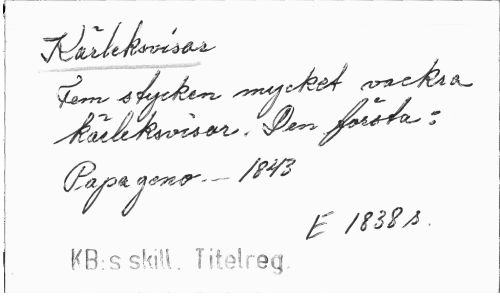 Kärleksvisor
Fem stycken mycket vackra
kärleksvisor. Den första:
Papageno. — 1843
E 1838 s.
KB:s skill. Titelreg.